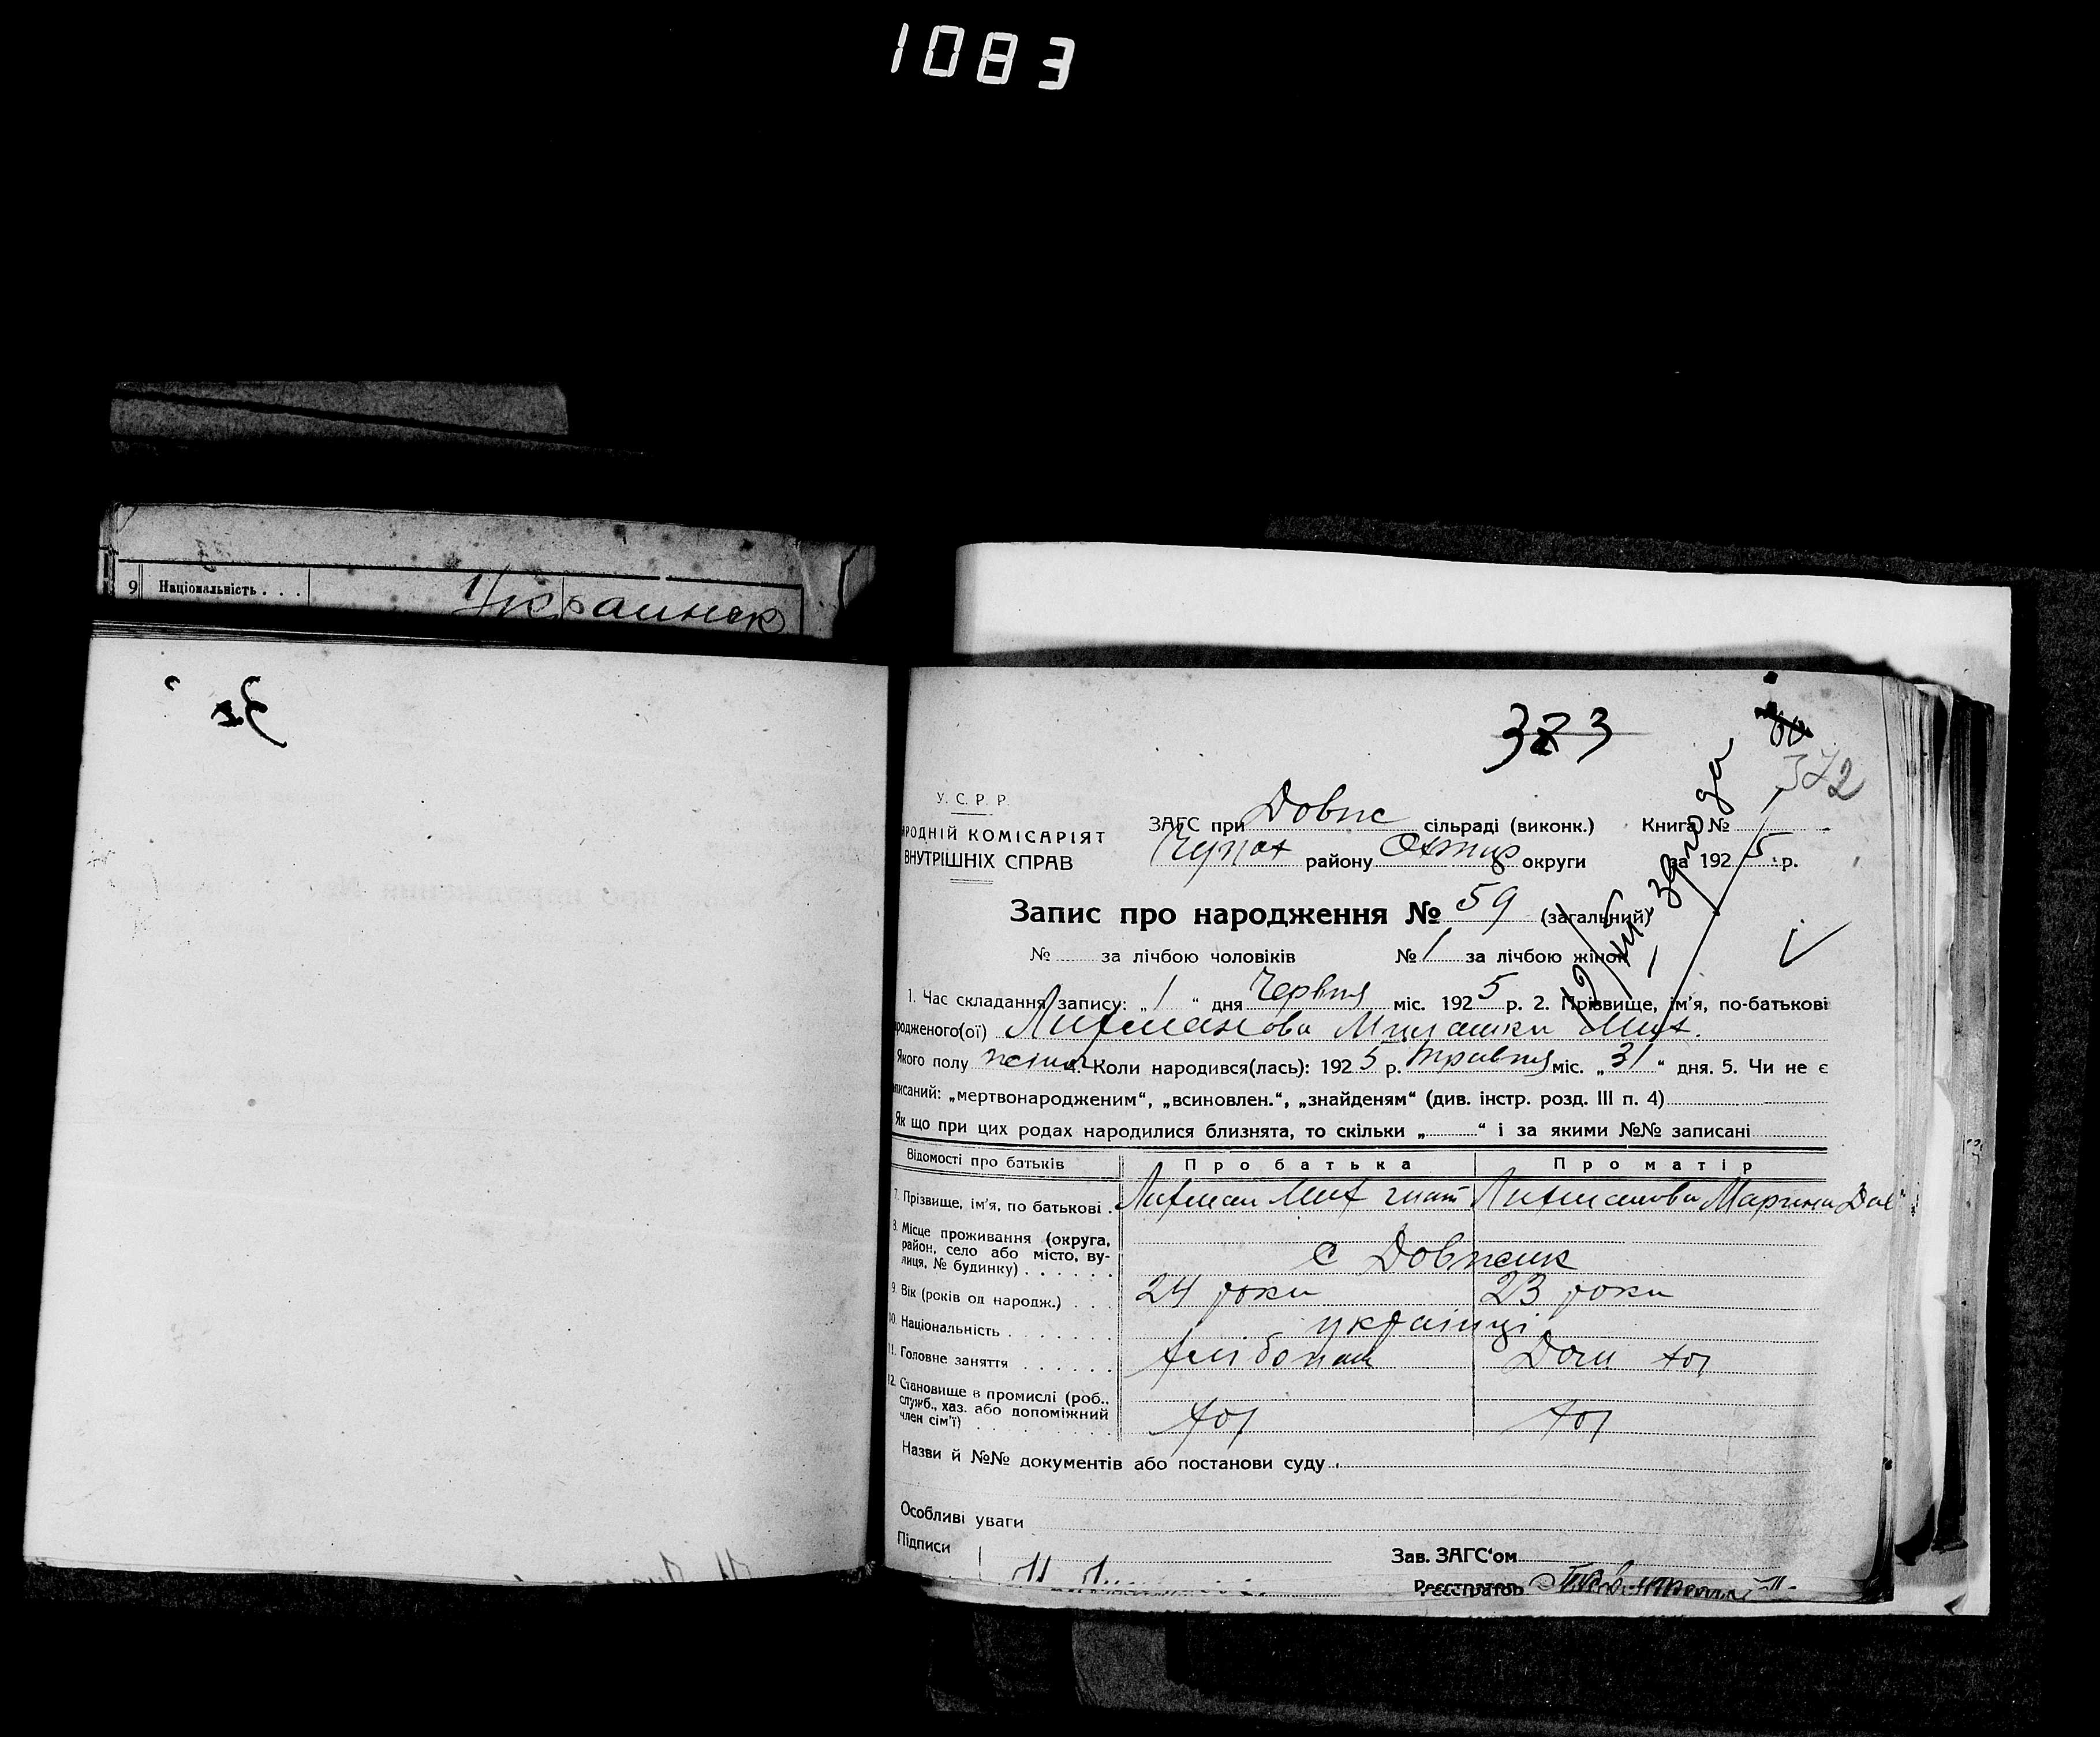 1083
9 Національність . . . Украинск
323
372
У. С. Р. Р.
РОДНІЙ КОМІСАРІЯТ
ВНУТРІШНІХ СПРАВ
ЗАГС при Довж сільраді (виконк.) Книга №
Чупах району Охтир округи за 1925 р.
Запис про народження № 59 (загальний)
№ за лічбою чоловіків № 1 за лічбою жінок
1. Час складання запису: „1“ дня Червня міс. 1925 р. 2. Прізвище, ім'я, по-батькові
родженого(ої) Лихманова Мих.
Якого полу жіноч. Коли народився(лась): 1925 р. травня міс. „31“ дня. 5. Чи не є
писаний: „мертвонародженим“, „всиновлен.“, „знайденям“ (див. інстр. розд. III п. 4)
Як що при цих родах народилися близнята, то скільки „ “ і за якими №№ записані
Відомості про батьків Про батька Про матір
7. Прізвище, ім'я, по батькові . Лихман Мих Гнат Лихманова Марина
8. Місце проживання (округа,
район, село або місто, ву-
лиця, № будинку) . . . . . . с Довжик
9. Вік (років од народж.) . . . 24 роки 23 роки
10. Національність . . . . . . . українці
11. Головне заняття . . . . . . хлібопаш Дом хоз
12. Становище в промислі (роб.,
служб., хаз. або допоміжний
член сім'ї) . . . . . . . . . хоз хоз
Назви й №№ документів або постанови суду
Особливі уваги
Підписи
Зав. ЗАГС'ом
Реєстратор